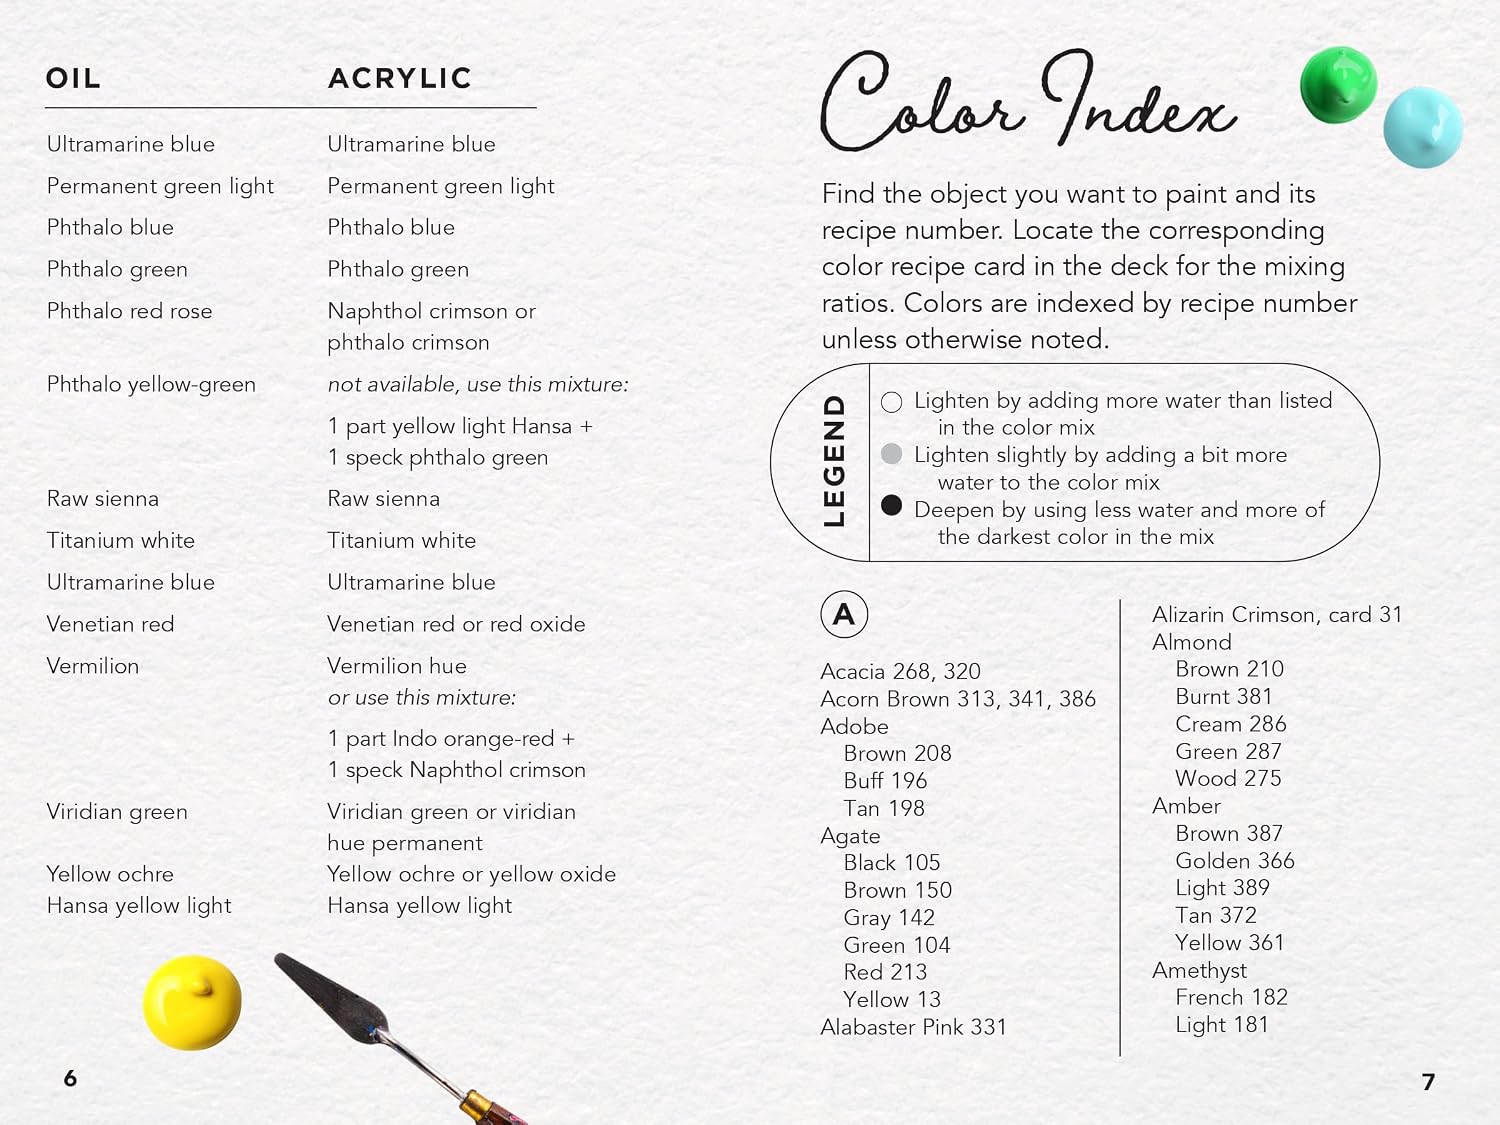 OIL ACRYLIC
Ultramarine blue Ultramarine blue
Permanent green light Permanent green light
Phthalo blue Phthalo blue
Phthalo green Phthalo green
Phthalo red rose Naphthol crimson or
phthalo crimson
Phthalo yellow-green not available, use this mixture:
1 part yellow light Hansa +
1 speck phthalo green
Raw sienna Raw sienna
Titanium white Titanium white
Ultramarine blue Ultramarine blue
Venetian red Venetian red or red oxide
Vermilion Vermilion hue
or use this mixture:
1 part Indo orange-red +
1 speck Naphthol crimson
Viridian green Viridian green or viridian
hue permanent
Yellow ochre Yellow ochre or yellow oxide
Hansa yellow light Hansa yellow light
6
Color Index
Find the object you want to paint and its
recipe number. Locate the corresponding
color recipe card in the deck for the mixing
ratios. Colors are indexed by recipe number
unless otherwise noted.
LEGEND
Lighten by adding more water than listed
in the color mix
Lighten slightly by adding a bit more
water to the color mix
Deepen by using less water and more of
the darkest color in the mix
A
Acacia 268, 320
Acorn Brown 313, 341, 386
Adobe
Brown 208
Buff 196
Tan 198
Agate
Black 105
Brown 150
Gray 142
Green 104
Red 213
Yellow 13
Alabaster Pink 331
Alizarin Crimson, card 31
Almond
Brown 210
Burnt 381
Cream 286
Green 287
Wood 275
Amber
Brown 387
Golden 366
Light 389
Tan 372
Yellow 361
Amethyst
French 182
Light 181
7